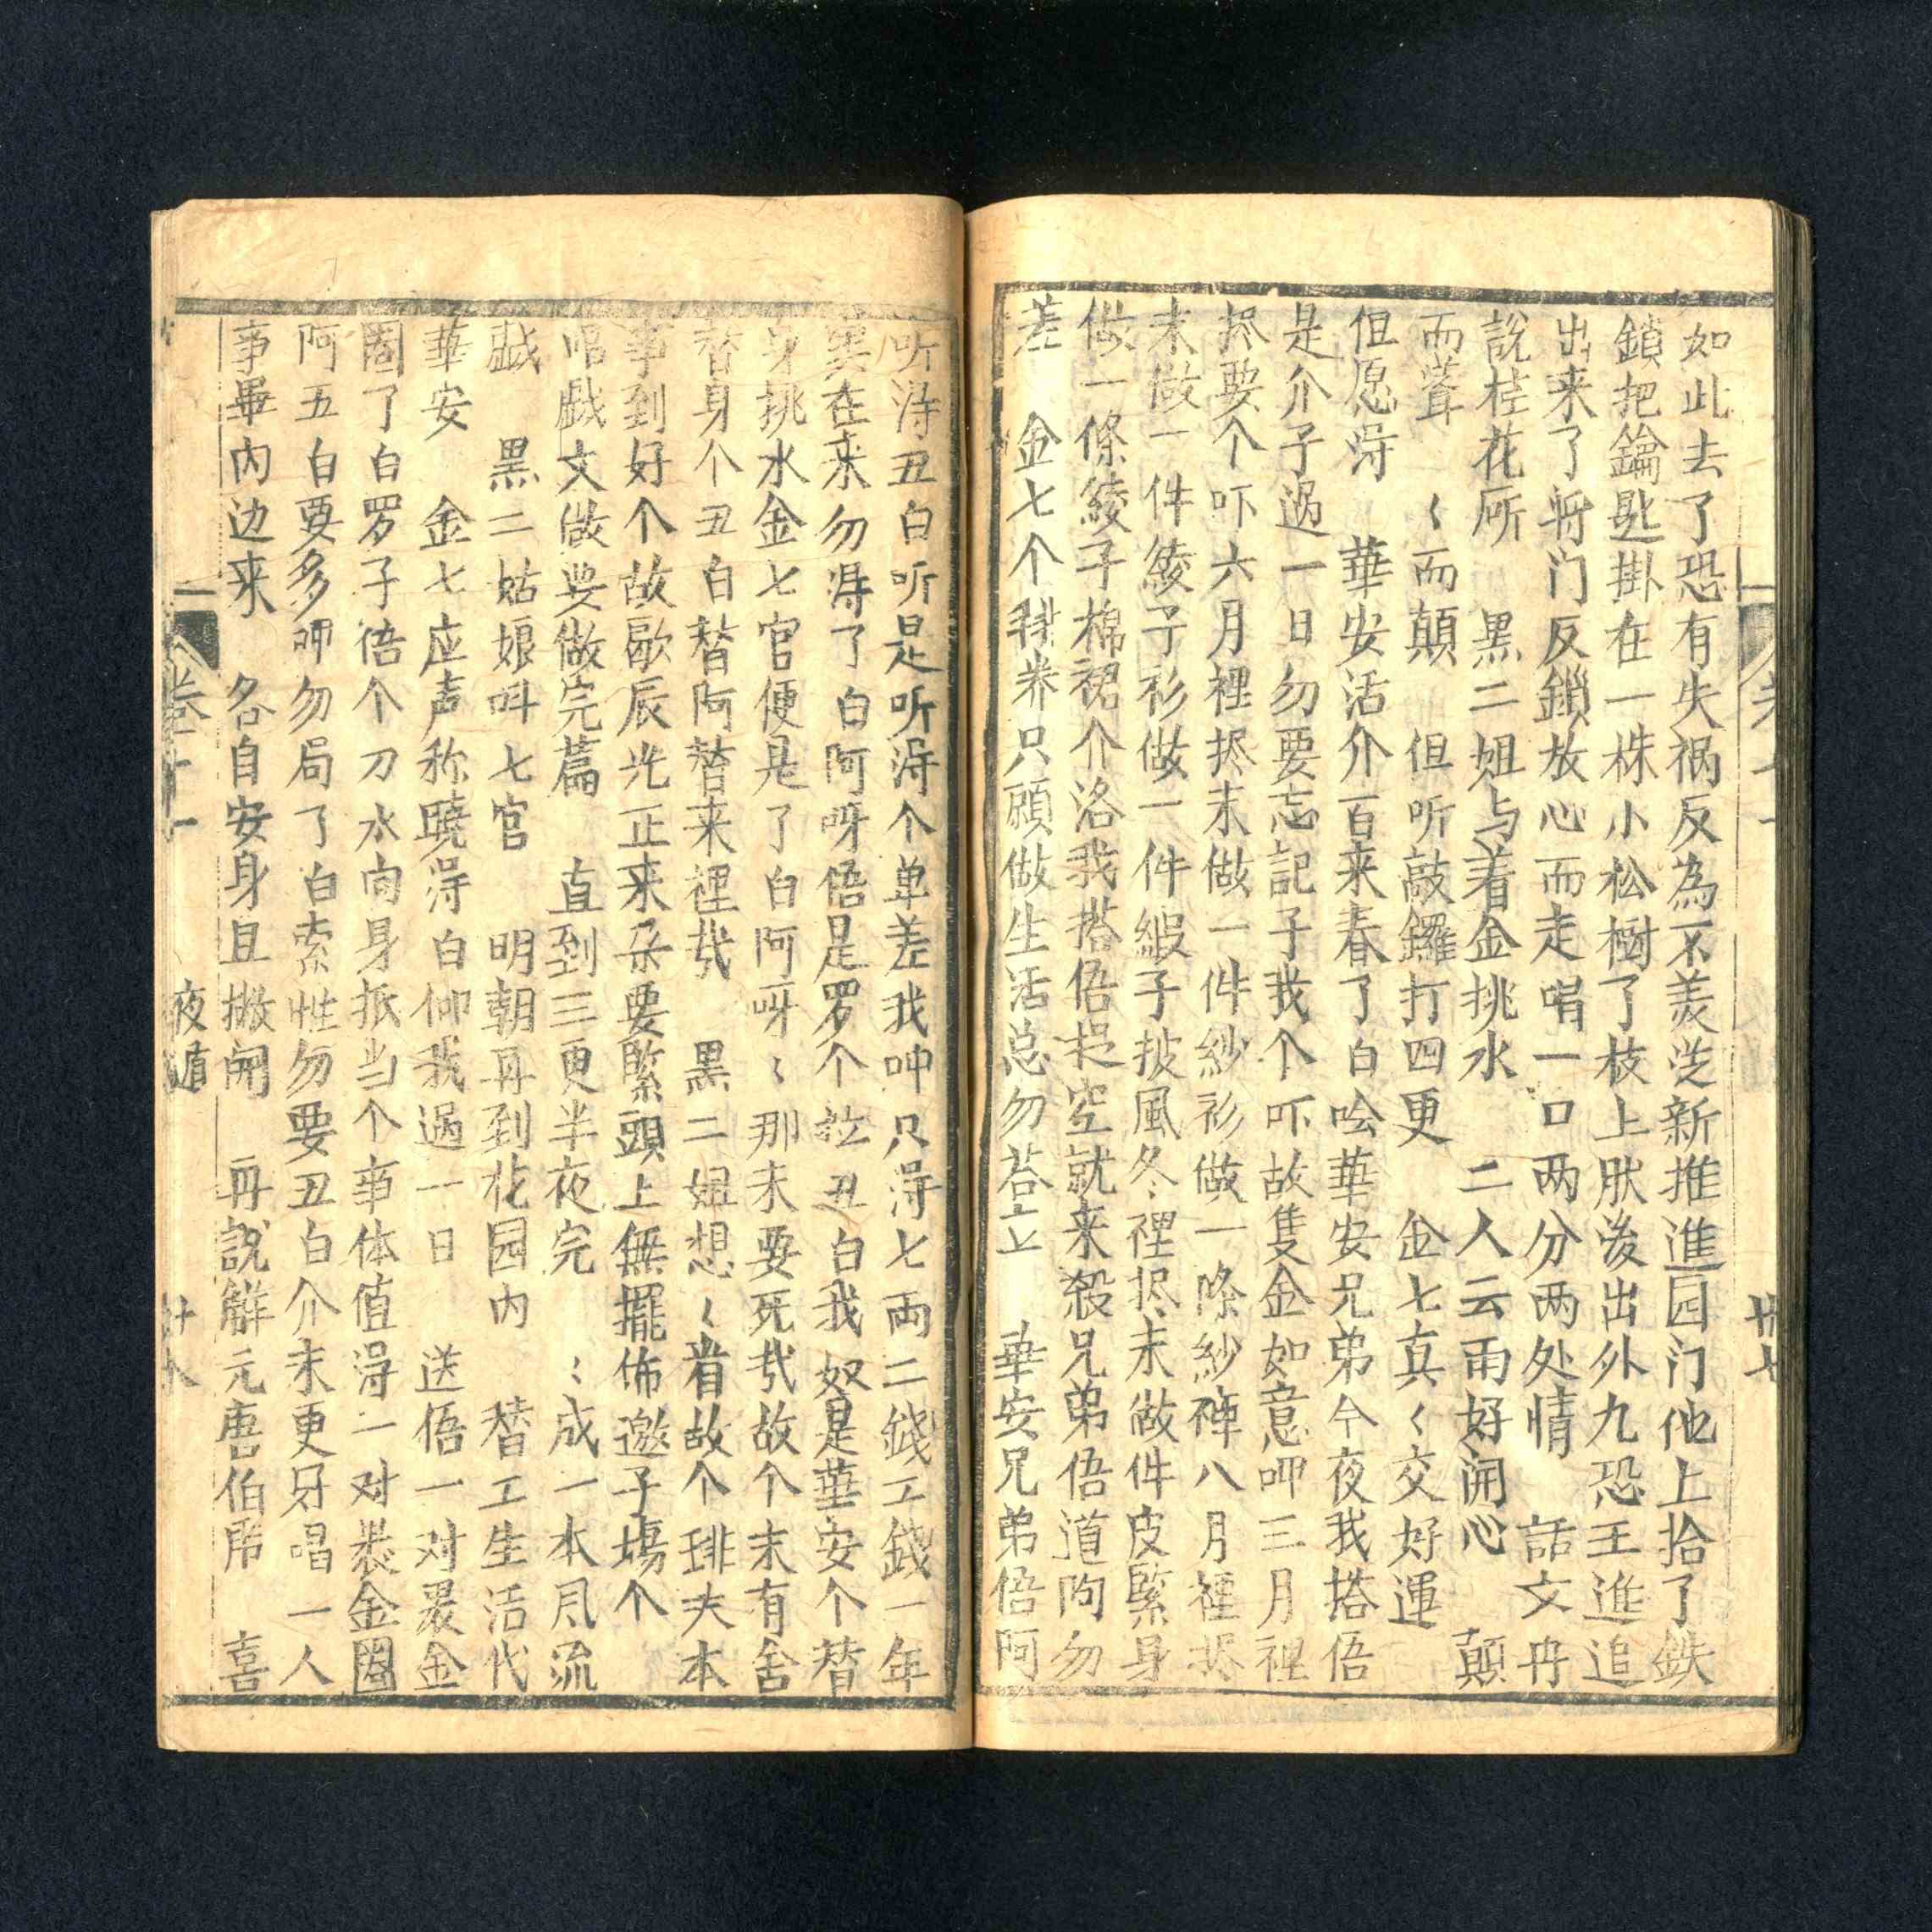 如此去了恐有失祸反為不美从新推進园门他上拾了鉄
鎖把鑰匙掛在一株小松樹了枝上肤後出外九恐王進追
出来了将门反鎖放心而走唱一口两分两处情　話文冉
說桂花所　黑二姐与着金挑水　二人云雨好開心　顛
而聳　〻而顛　但听敲鑼打四更　金七真〻交好運
但愿淂　華安活介百来春了白唅華安兄弟今夜我搭俉
是介子過一日勿要忘記子我个吓故隻金如意呷三月裡
拯要个吓六月裡拯末做一件紗衫做一條紗褌八月裡拯
末做一件綾子衫做一件緞子披風冬裡拯末做件皮緊身
做一條綾子棉裙介洛我搭俉捉空就来殺兄弟俉道阿勿
差　金七个　养只顾做生活总勿荅上　華安兄弟俉阿
听淂丑白听是听淂个单差我呷只淂七両二錢工錢一年
在来勿淂了白阿呀俉是罗个　丑白我奴是華安个替
身挑水金七官便是了白阿呀〻那末要死哉故个末有舍
替身个丑白替阿替来裡哉　黑二姐想〻着故个　夫本
事到好个故歇辰光正来朶要緊頭上無擺佈邀子塲个
唱戲文做要做完篇　直到三更半夜完　〻成一本風流
戲　黑二姑娘呌七官　明朝再到花园内　替工生活代
華安　金七应声称曉淂　白仰我過一日　送俉一对金
圈了白罗子俉个刀水向身抵当个事体值淂一对　金圈
阿五白要多呷勿局了白索性勿要丑白介末更牙唱　一人
事畢內边来　各自安身且撇開　再說解元唐伯虎　喜
卷十一
夜遁
廿八
廿七